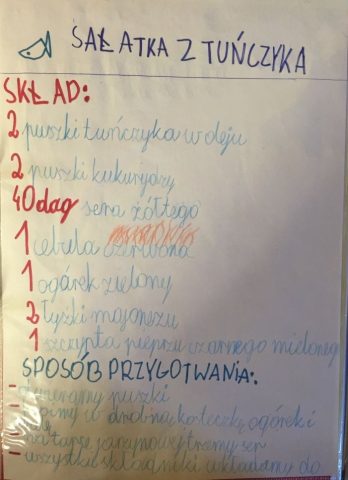 SAŁATKA Z TUŃCZYKA
SKŁAD:
2 puszki tuńczyka w oleju
2 puszki kukurydzy
40 dag sera żółtego
1 cebula czerwona
1 ogórek zielony
2 łyżki majonezu
1 szczypta pieprzu czarnego mielonego
SPOSÓB PRZYGOTWANIA:
- otwieramy puszki
- w drobną kosteczkę ogórek i
- na tarce jarzynowej trzemy ser
- wszystkie składniki wkładamy do